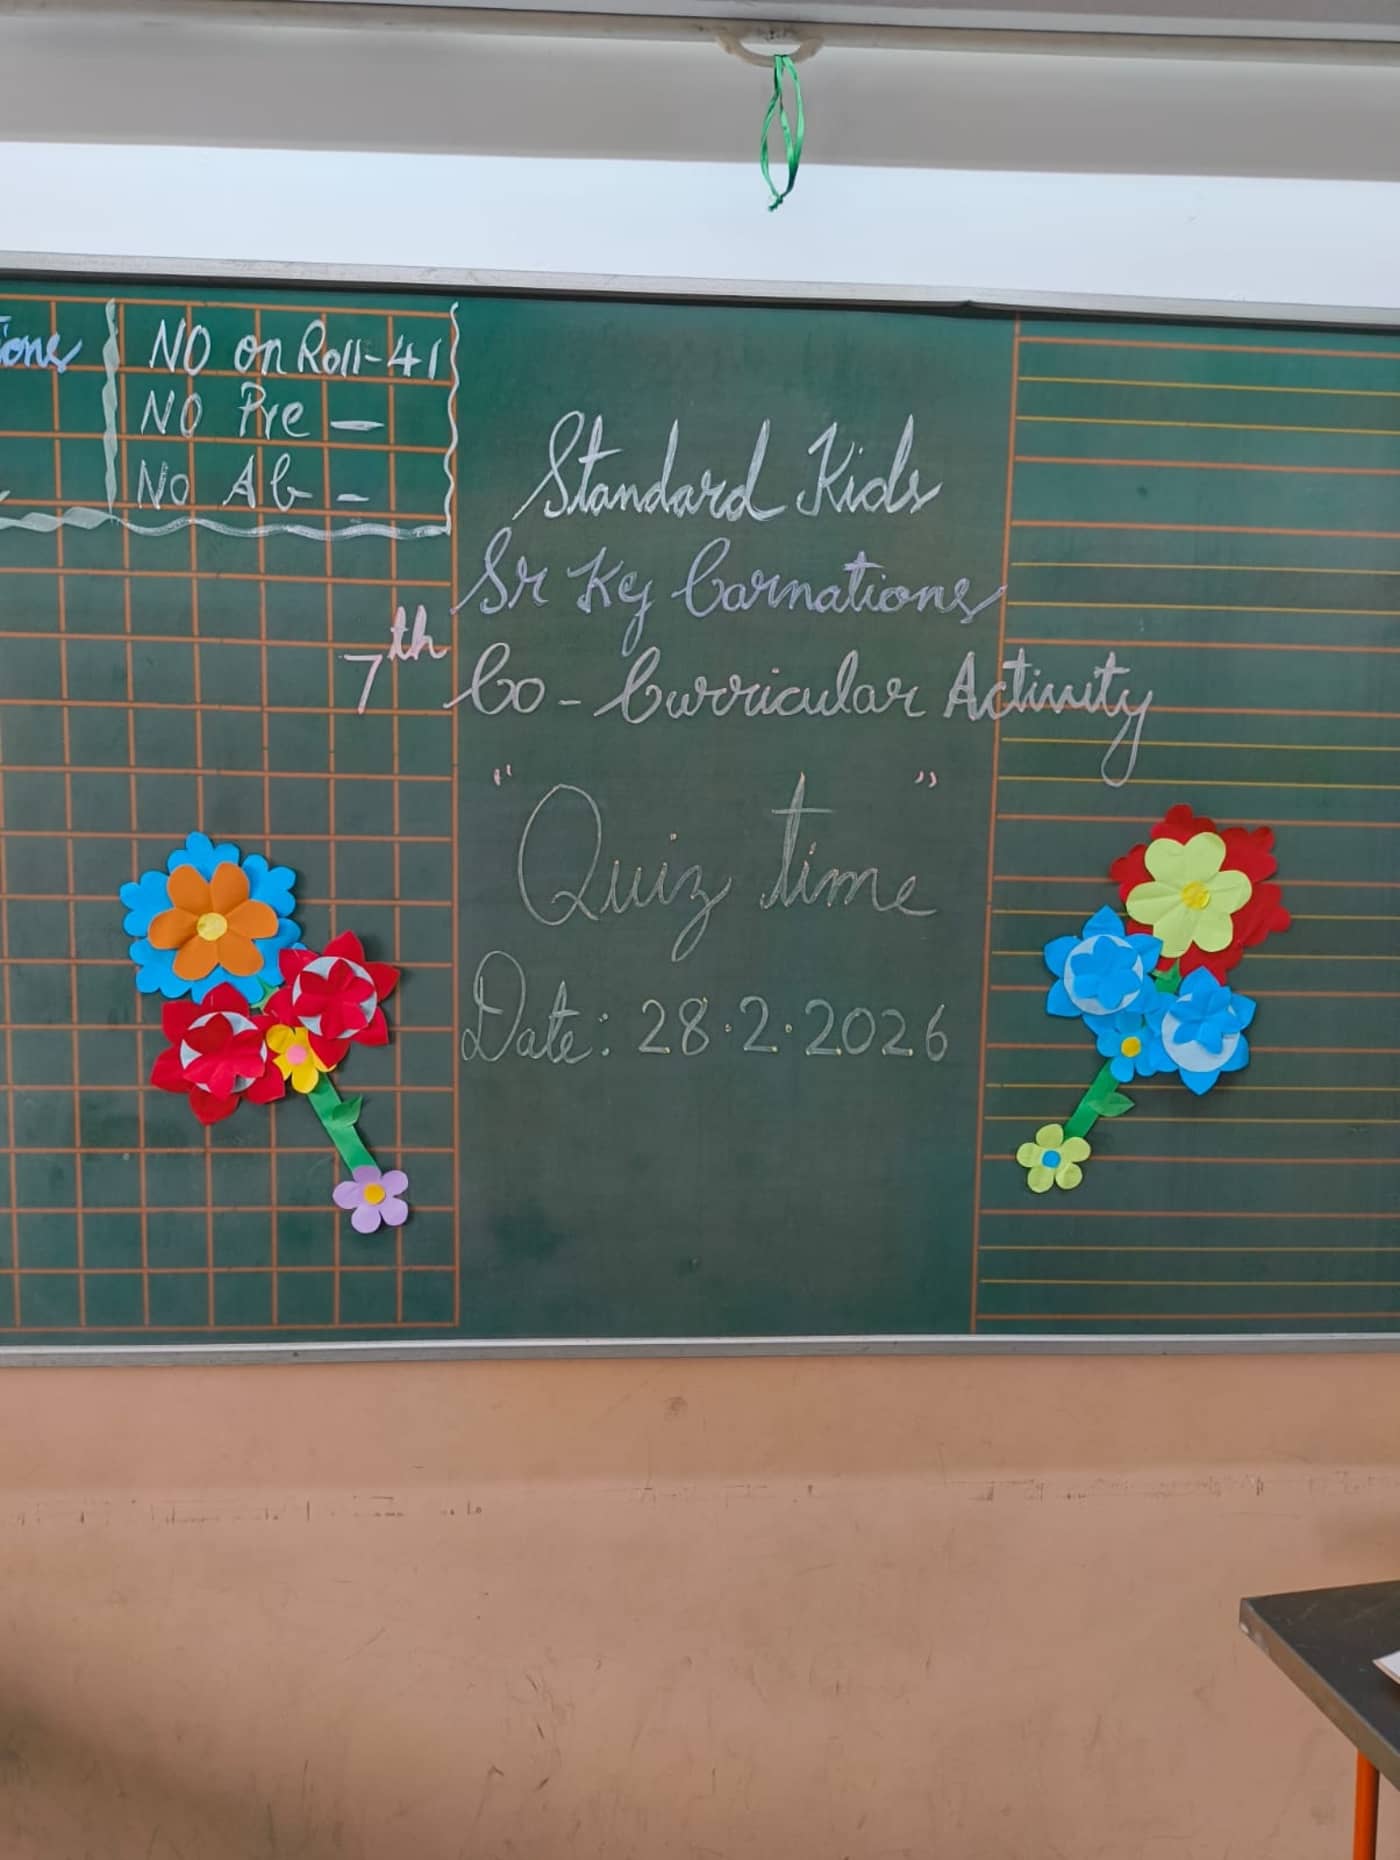 NO on Roll-41
NO Pre -
No Ab -
Standard Kids
Sr Kg Carnations
7th Co-Curricular Activity
"Quiz time"
Date: 28.2.2026